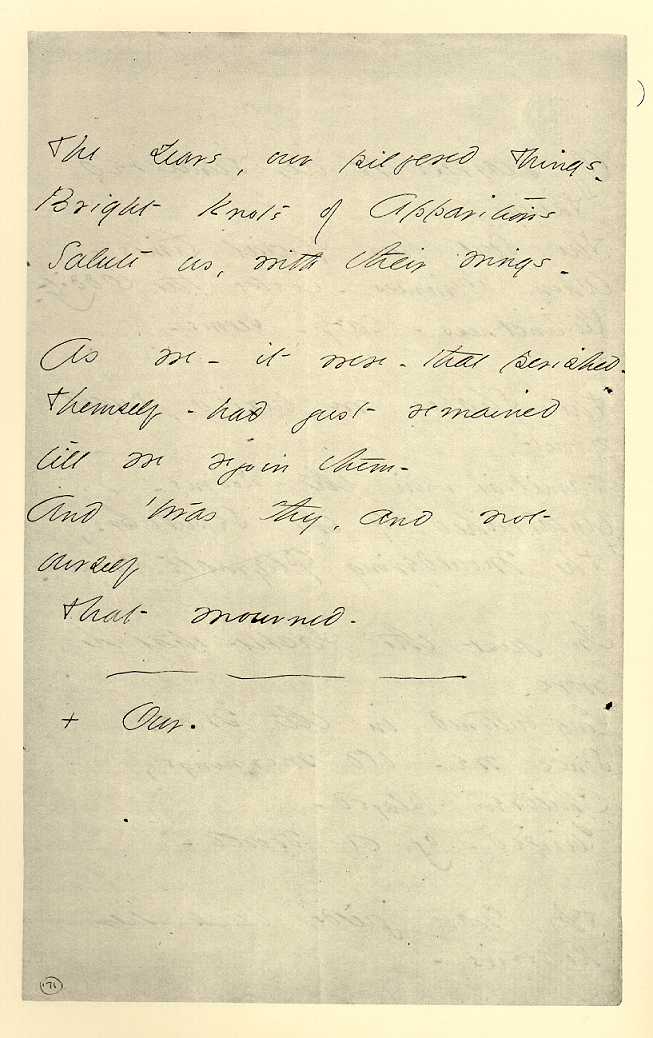 The Years, our pilfered Things -
Bright Knots of Apparitions
Salute us, with their wings -
As we - it were - that perished -
Themself - had just remained
till we rejoin them -
And 'twas they, and not
ourself
That mourned -
+ Our.
171